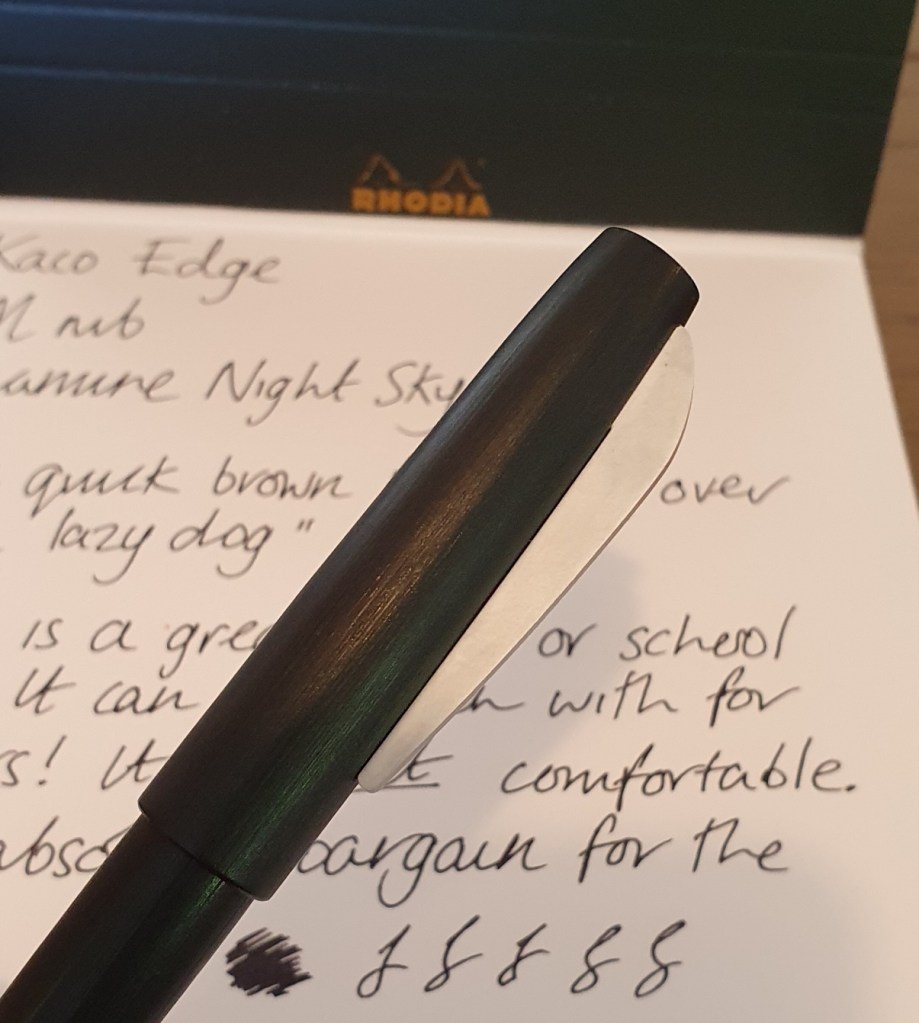 RHODIA
Kaco Edge
M nib
amine Night Sky
quick brown over
lazy dog"
is a grea or school
It can with for
s! It comfortable.
abso bargain for the